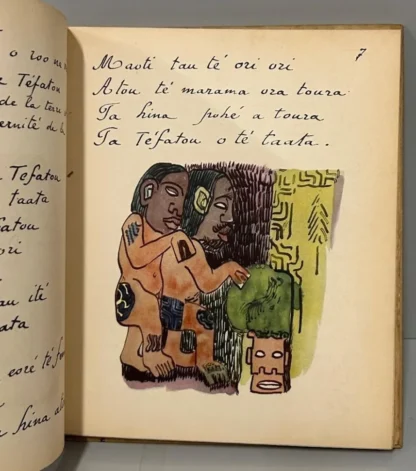 o roo
Téfatou
de la terre
ernité de la
Tefatou
taata
fatou
ori
au ité
ata
coré té f
hina
7
Maoti tau té ori ori
Atou té marama ora toura
Ta hina pohé a toura
Ta Téfatou o té taata.